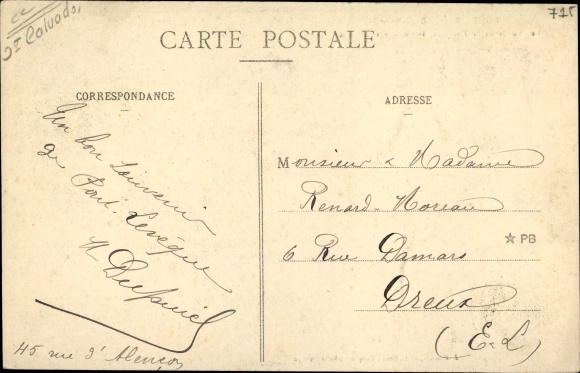 Dt Calvados
725
CARTE POSTALE
CORRESPONDANCE
Un bon souvenir
de Pont-Levêque
45 rue d'Alençon
ADRESSE
Monsieur & Madame
Renard-Moreau
6 Rue Damars
PB
Dreux
(E.L)